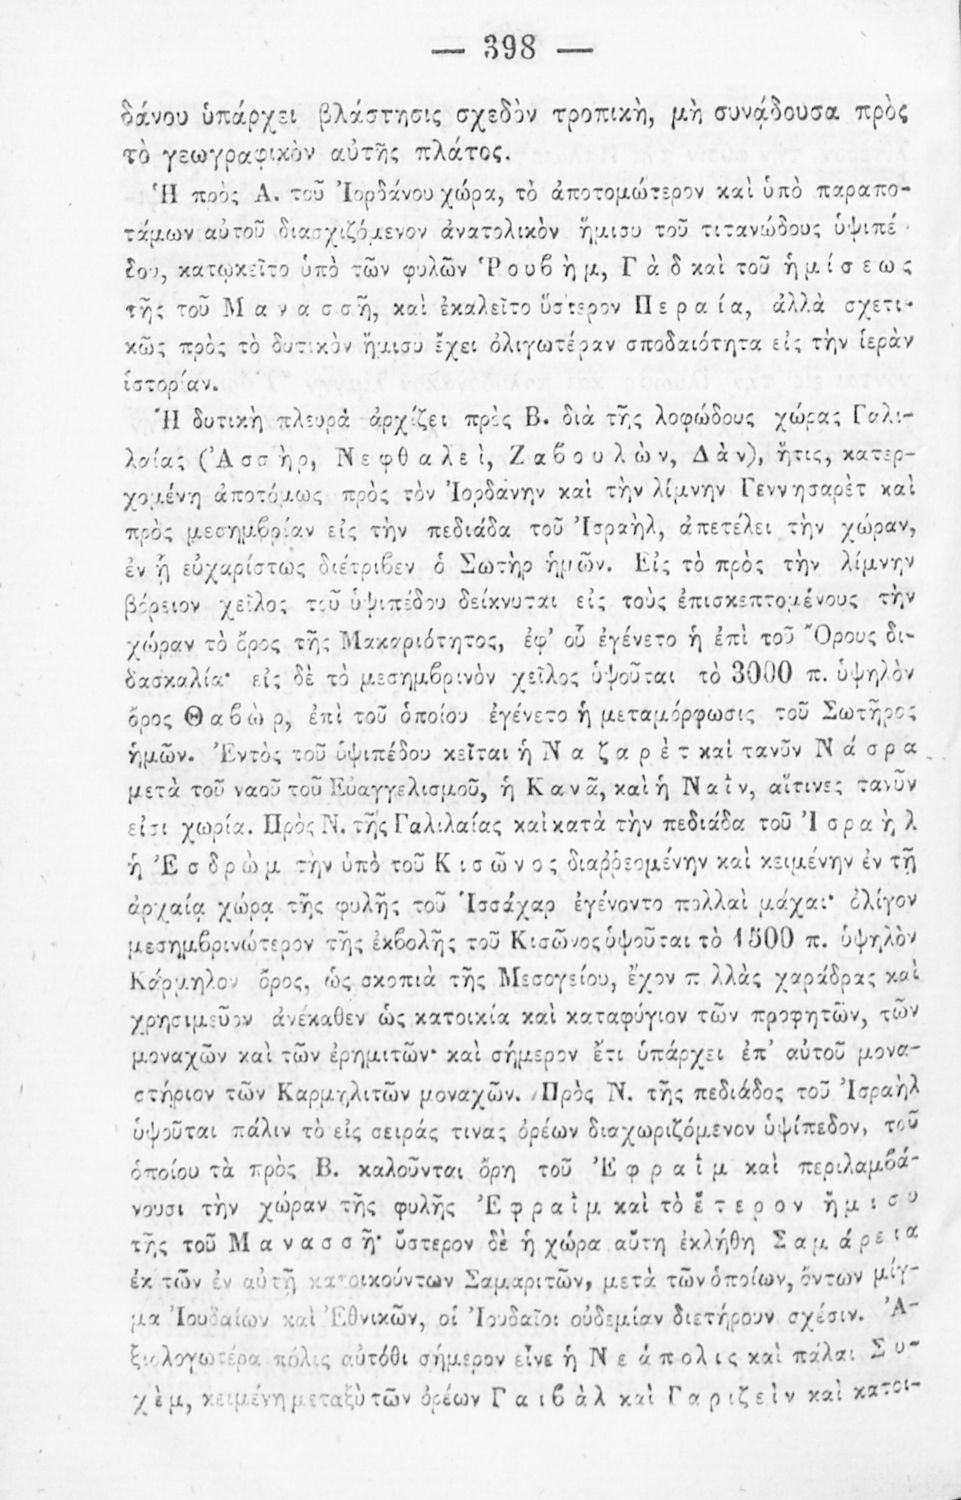 — 398 —
δάνου ὑπάρχει βλάστησις σχεδὸν τροπικὴ, μὴ συνᾴδουσα πρὸς
τὸ γεωγραφικὸν αὐτῆς πλάτος.
Ἡ πρὸς Α. τοῦ Ἰορδάνου χώρα, τὸ ἀποτομώτερον καὶ ὑπὸ παραπο-
τάμων αὐτοῦ διασχιζόμενον ἀνατολικὸν ἥμισυ τοῦ τιτανώδους ὑψιπέ-
δου, κατῳκεῖτο ὑπὸ τῶν φυλῶν Ῥουβὴμ, Γὰδ καὶ τοῦ ἡμίσεως
τῆς τοῦ Μανασσῆ, καὶ ἐκαλεῖτο ὕστερον Περαία, ἀλλὰ σχετι-
κῶς πρὸς τὸ δυτικὸν ἥμισυ ἔχει ὀλιγωτέραν σποδαιότητα εἰς τὴν ἱερὰν
ἱστορίαν.
Ἡ δυτικὴ πλευρὰ ἀρχίζει πρὸς Β. διὰ τῆς λοφώδους χώρας Γαλι-
λαίας (Ἀσσὴρ, Νεφθαλεὶ, Ζαβουλὼν, Δὰν), ἥτις, κατερ-
χομένη ἀποτόμως πρὸς τὸν Ἰορδάνην καὶ τὴν λίμνην Γεννησαρὲτ καὶ
πρὸς μεσημβρίαν εἰς τὴν πεδιάδα τοῦ Ἰσραὴλ, ἀπετέλει τὴν χώραν,
ἐν ᾗ εὐχαρίστως διέτριβεν ὁ Σωτὴρ ἡμῶν. Εἰς τὸ πρὸς τὴν λίμνην
βόρειον χεῖλος τοῦ ὑψιπέδου δείκνυται εἰς τοὺς ἐπισκεπτομένους τὴν
χώραν τὸ ὄρος τῆς Μακαριότητος, ἐφ' οὗ ἐγένετο ἡ ἐπὶ τοῦ Ὄρους δι-
δασκαλία· εἰς δὲ τὸ μεσημβρινὸν χεῖλος ὑψοῦται τὸ 3000 π. ὑψηλὸν
ὄρος Θαβὼρ, ἐπὶ τοῦ ὁποίου ἐγένετο ἡ μεταμόρφωσις τοῦ Σωτῆρος
ἡμῶν. Ἐντὸς τοῦ ὑψιπέδου κεῖται ἡ Ναζαρὲτ καὶ τανῦν Νάσρα
μετὰ τοῦ ναοῦ τοῦ Εὐαγγελισμοῦ, ἡ Κανᾶ, καὶ ἡ Ναῒν, αἵτινες τανῦν
εἰσι χωρία. Πρὸς Ν. τῆς Γαλιλαίας καὶ κατὰ τὴν πεδιάδα τοῦ Ἰσραὴλ
ἡ Ἐσδρὼμ τὴν ὑπὸ τοῦ Κισῶνος διαῤῥεομένην καὶ κειμένην ἐν τῇ
ἀρχαίᾳ χώρᾳ τῆς φυλῆς τοῦ Ἰσσάχαρ ἐγένοντο πολλαὶ μάχαι· ὀλίγον
μεσημβρινώτερον τῆς ἐκβολῆς τοῦ Κισῶνος ὑψοῦται τὸ 1500 π. ὑψηλὸν
Κάρμηλον ὄρος, ὡς σκοπιὰ τῆς Μεσογείου, ἔχον π λλὰς χαράδρας καὶ
χρησιμεῦον ἀνέκαθεν ὡς κατοικία καὶ καταφύγιον τῶν προφητῶν, τῶν
μοναχῶν καὶ τῶν ἐρημιτῶν· καὶ σήμερον ἔτι ὑπάρχει ἐπ' αὐτοῦ μονα-
στήριον τῶν Καρμηλιτῶν μοναχῶν. Πρὸς Ν. τῆς πεδιάδος τοῦ Ἰσραὴλ
ὑψοῦται πάλιν τὸ εἰς σειράς τινας ὀρέων διαχωριζόμενον ὑψίπεδον, τοῦ
ὁποίου τὰ πρὸς Β. καλοῦνται ὄρη τοῦ Ἐφραῒμ καὶ περιλαμβά-
νουσι τὴν χώραν τῆς φυλῆς Ἐφραῒμ καὶ τὸ ἕτερον ἥμισυ
τῆς τοῦ Μανασσῆ· ὕστερον δὲ ἡ χώρα αὕτη ἐκλήθη Σαμάρεια
ἐκ τῶν ἐν αὐτῇ κατοικούντων Σαμαριτῶν, μετὰ τῶν ὁποίων, ὄντων μίγ-
μα Ἰουδαίων καὶ Ἐθνικῶν, οἱ Ἰουδαῖοι οὐδεμίαν διετήρουν σχέσιν. Ἀ-
ξιολογωτέρα πόλις αὐτόθι σήμερον εἶνε ἡ Νεάπολις καὶ πάλαι Συ-
χὲμ, κειμένη μεταξὺ τῶν ὀρέων Γαιβὰλ καὶ Γαριζεὶν καὶ κατοι-